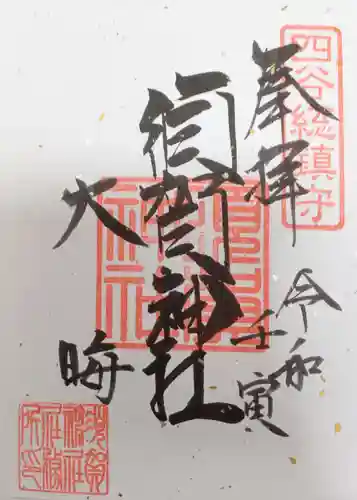 四谷総鎮守
奉拝
令和
壬寅
須賀神社
須賀神社
大晦
須賀神社社務所印